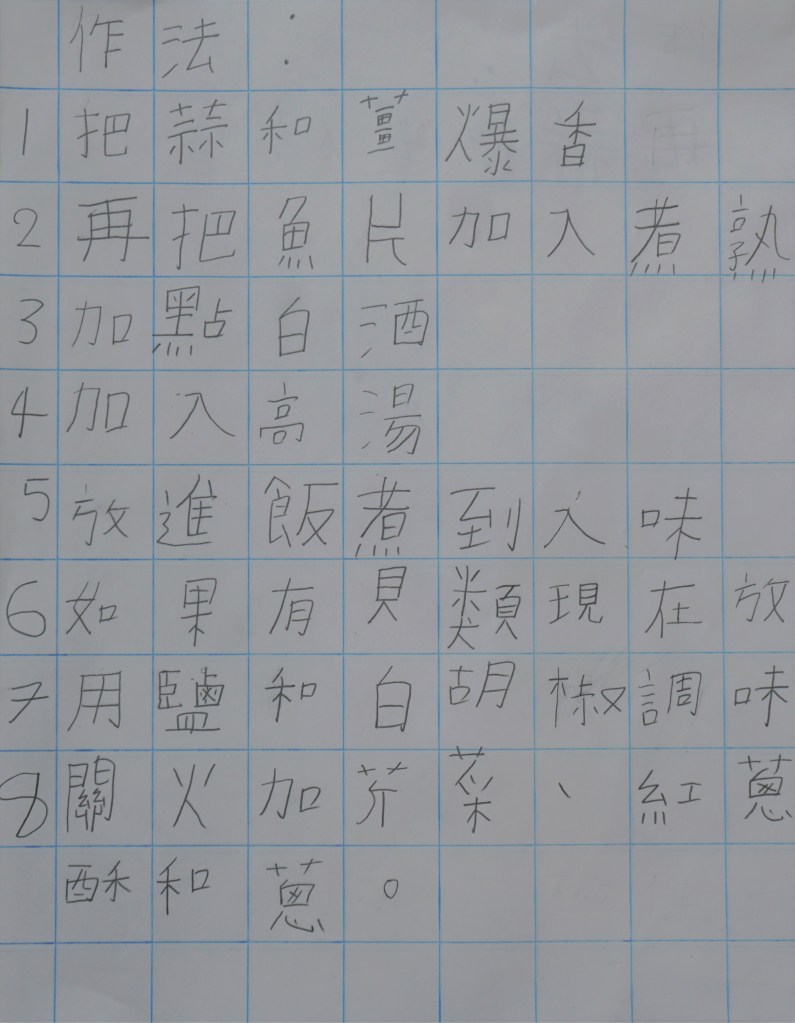 作法：
1把蒜和薑爆香
2再把魚片加入煮熟
3加點白酒
4加入高湯
5放進飯煮到入味
6如果有貝類現在放
7用鹽和白胡椒調味
8關火加芹菜、紅蔥
酥和蔥。